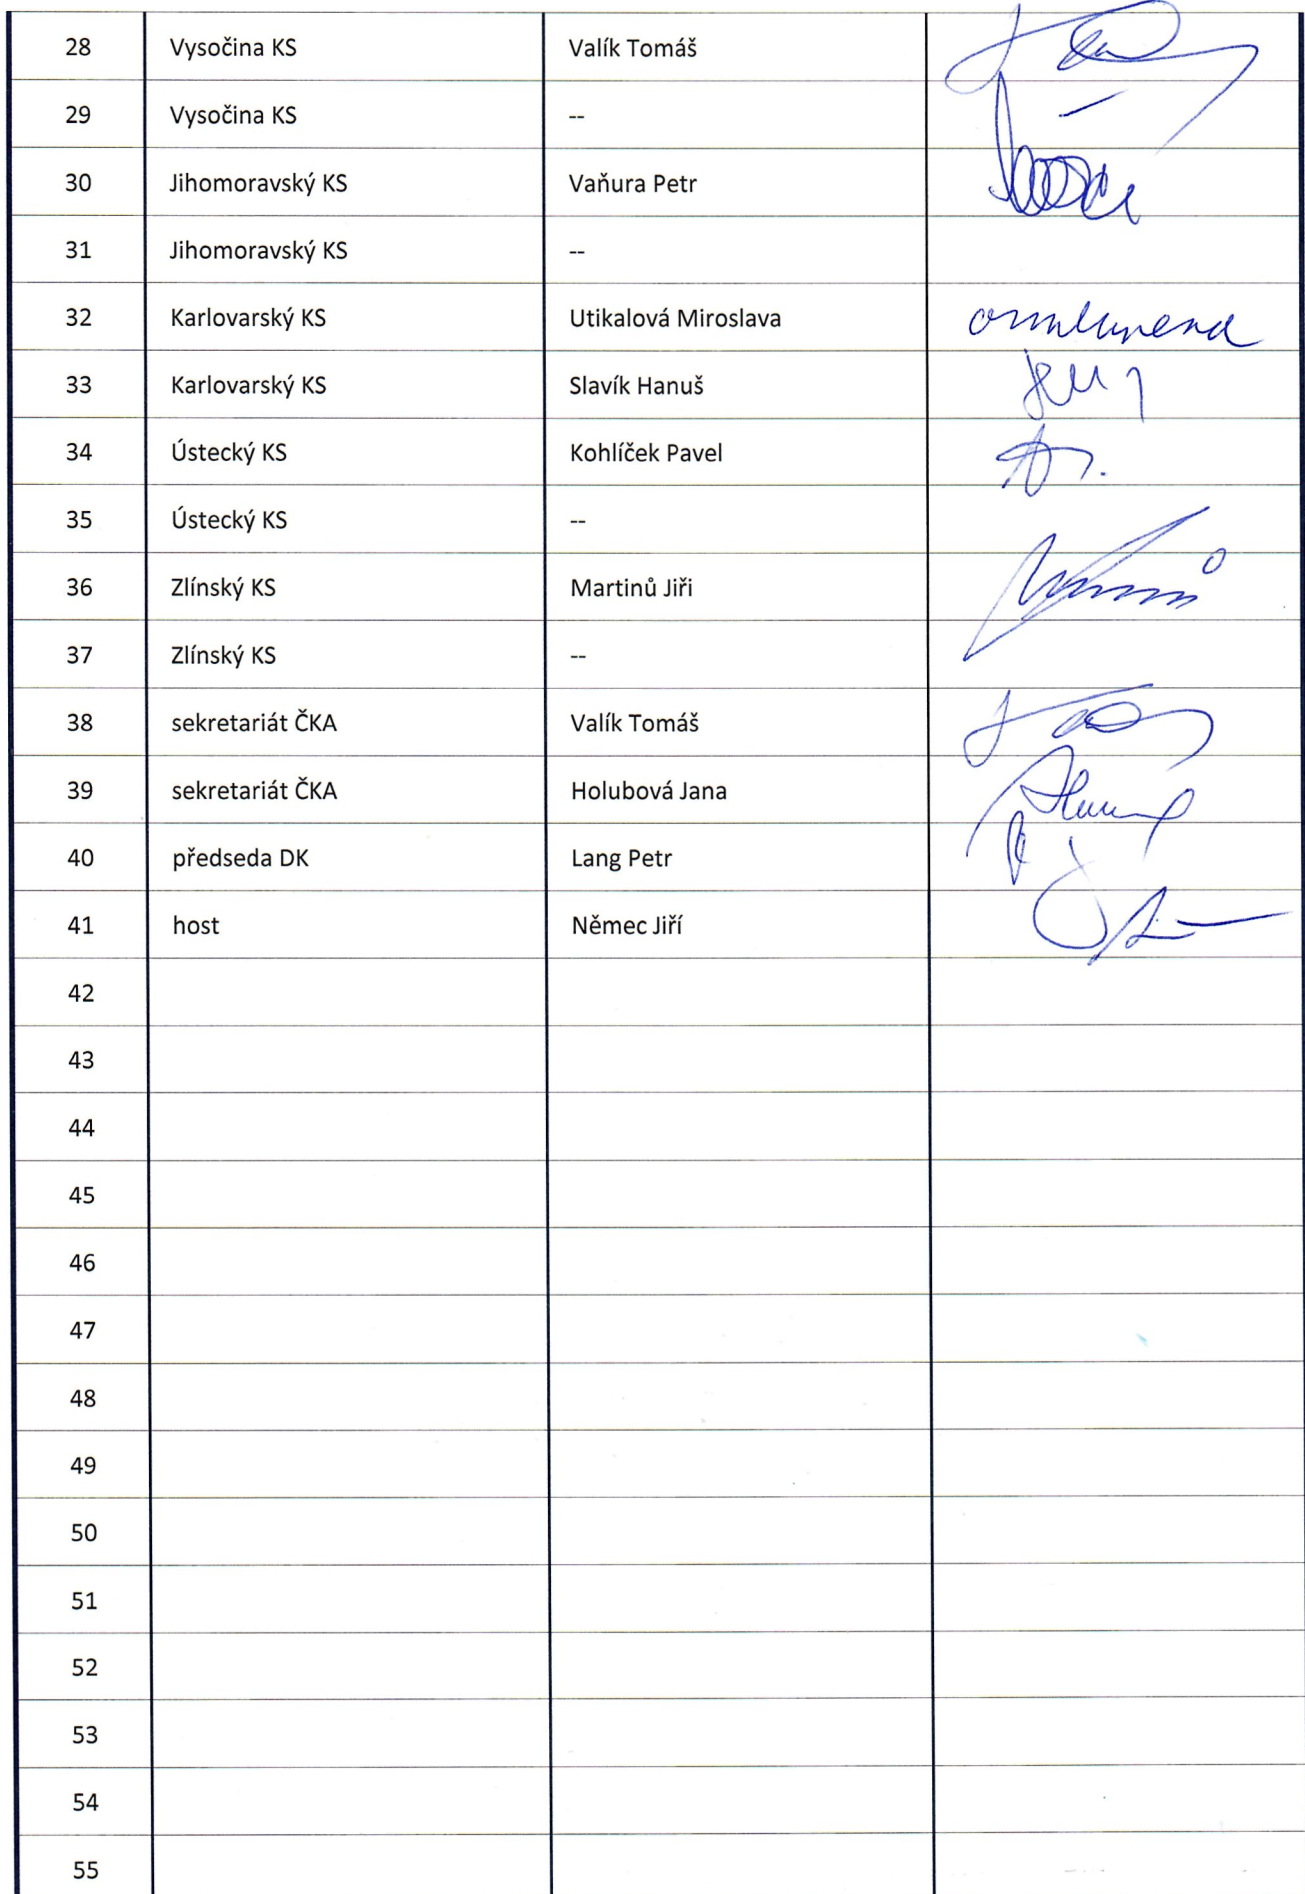 28 Vysočina KS Valík Tomáš
29 Vysočina KS -- –
30 Jihomoravský KS Vaňura Petr
31 Jihomoravský KS --
32 Karlovarský KS Utikalová Miroslava omluvena
33 Karlovarský KS Slavík Hanuš
34 Ústecký KS Kohlíček Pavel
35 Ústecký KS --
36 Zlínský KS Martinů Jiři
37 Zlínský KS --
38 sekretariát ČKA Valík Tomáš
39 sekretariát ČKA Holubová Jana
40 předseda DK Lang Petr
41 host Němec Jiří
42
43
44
45
46
47
48
49
50
51
52
53
54
55